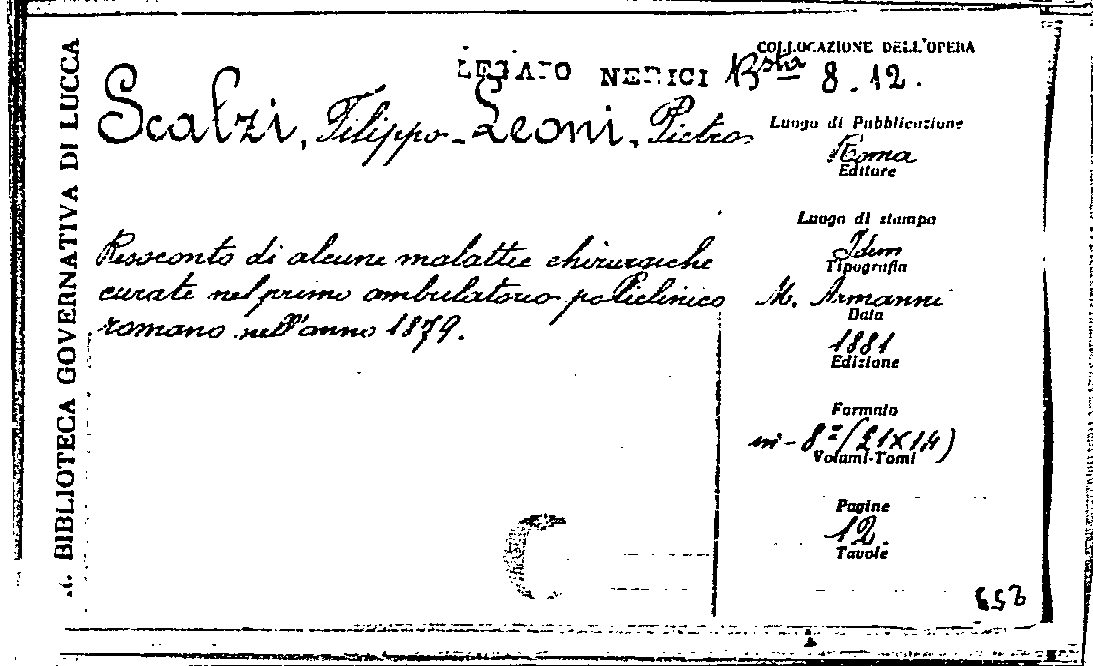 R. BIBLIOTECA GOVERNATIVA DI LUCCA
COLLOCAZIONE DELL'OPERA
LEGATO NERICI Bsta 8.12.
Scalzi, Filippo - Leoni, Pietro
Luogo di Pubblicazione
Roma
Editore
Luogo di stampa
Idem
Tipografia
M. Armanni
Data
1881
Edizione
Formato
in-8º (21x14)
Volumi-Tomi
Pagine
12.
Tavole
Resoconto di alcune malattie chirurgiche
curate nel primo ambulatorio policlinico
romano nell'anno 1879.